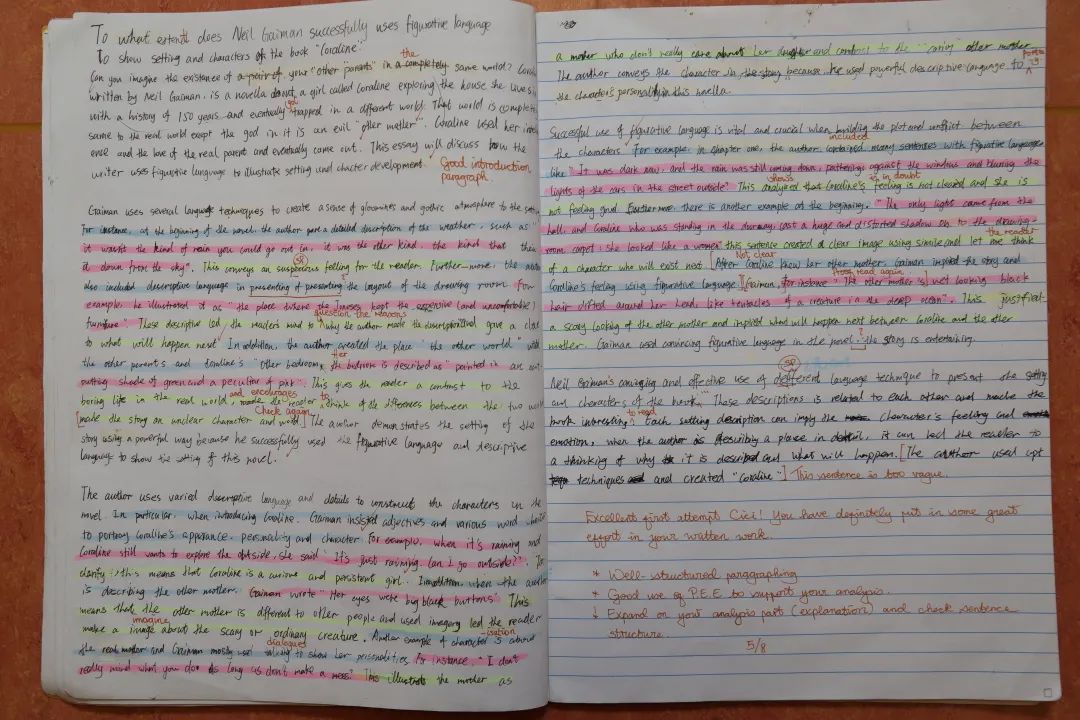 To what extent does Neil Gaiman successfully uses figurative language
To show setting and characters of the book "Coraline"
the
Can you imagine the existence of a pair of your "other parents" in a completely same world?
written by Neil Gaiman, is a novella about, a girl called Coraline exploring the house she lives
with a history of 150 years and eventually got trapped in a different world. That world is complete
same to the real world except the god in it is an evil "other mother". Coraline used her
ence and the love of the real parent and eventually came out. This essay will discuss how the
writer uses figurative language to illustrate setting and character development.
Good introduction
paragraph.
Gaiman uses several language techniques to create a sense of gloominess and gothic atmosphere to the
For instance, at the beginning of the novel, the author gave a detailed description of the weather, such as "
it wasn't the kind of rain you could go out in, it was the other kind, the kind that
it down from the sky". This conveys an suspicious felling for the reader. Further-more, the
sp
also included descriptive language in presenting of presenting the layout of the drawing room. For
example, he illustrated it as "the place where the houses kept the expensive (and uncomfortable)
furniture". These descriptive led the reader's mind to question the reasons why the author made the description and gave a
to what will happen next. In addition, the author created the place "the other world" with
the other parents and Coraline's "other bedroom", the bedroom is described as "painted in an
putting shade of green and a peculiar of pink". This gives the reader a contrast to the
boring life in the real world, and encourages the reader to think of the differences between the two
Check again
[made the story an unclear character and world] The author demonstrates the setting of the
story using a powerful way because he successfully used the figurative language and descriptive
language to show the setting of this novel.
The author uses varied descriptive language and details to construct the characters in the
novel. In particular, when introducing Coraline. Gaiman inserted adjectives and various word
to portray Coraline's apperance, personality and character. For example, when it's raining and
Coraline still wants to explore the outside, she said "It's just raining, can I go outside?".
clarify, this means that Coraline is a curious and persistent girl. In addition, when the author
is describing the other mother, Gaiman wrote "Her eyes were big black buttons". This
means that the other mother is different to other people and used imagery led the reader
imagine
make a image about the scary or ordinary creature. Another example of character is about
-isation
dialogues
the real mother and Gaiman mostly uses talking to show her personalities. For instance, "I don't
really mind what you do as long as don't make a mess". This illustrate the mother as
a mother who don't really care about her daughter and contrast to the "caring" other mother.
The author conveys the character in the story because he used powerful descriptive language to
the character's personality in this novella.
Successful use of figurative language is vital and crucial when building the plot and conflict between
the characters. For example, in chapter one, the author contained many sentences with figurative language
included
like "It was dark now, and the rain was still coming down, pattering against the windows and blurring the
lights of the cars in the street outside". This analysed that Coraline's feeling is not cleared and she is
shows
is in doubt
not feeling good. Furthermore, there is another example at the beginning. "The only light came from the
hall, and Coraline who was standing in the doorway, cast a huge and distorted shadow on to the drawing-
room carpet: she looked like a women" this sentence created a clear image using simile and let me think
the reader
of a character who will exist next. [After Coraline knew her other mother, Gaiman inspired the story and
Not clear
Coraline's feeling using figurative language.] Gaiman, for instance "The other mother's wet looking black
read again
hair drifted around her head, like tentacles of a creature in the deep ocean". This justified
a scary looking of the other mother and implied what will happen next between Coraline and the other
mother. Gaiman used convincing figurative language in the novel. the story is entertaining.
?
sp
Neil Gaiman's convincing and effective use of language technique to present the setting
and characters of the book. These descriptions is related to each other and made the
book interesting. Each setting description can imply the character's feeling and
to read
emotion, when the author is describing a place in detail, it can led the reader to
a thinking of why it is described and what will happen. [The author used
techniques and created "Coraline".] This sentence is too vague.
Excellent first attempt Cici! You have definitely put in some great
effort in your written work.
* Well-structured paragraphing
* Good use of P.E.E to support your analysis.
↓ Expand on your analysis part (explanation) and check sentence
structure.
5/8